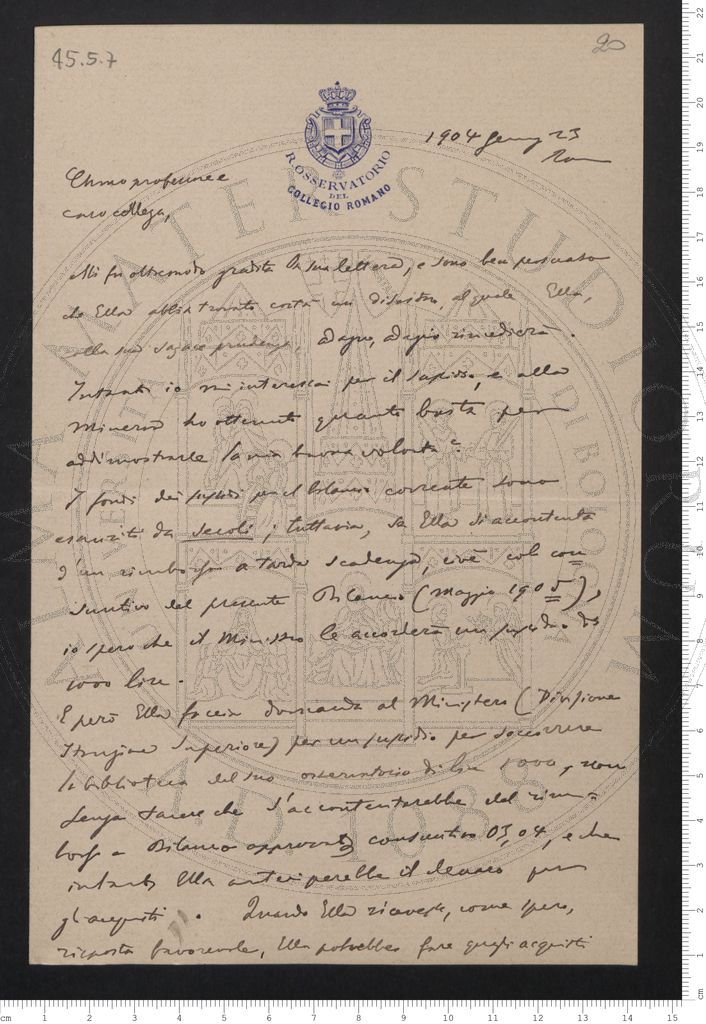 45.5.7
20
R. OSSERVATORIO
DEL
COLLEGIO ROMANO
1904 23
Roma
Chmo professore e
caro collega,
Mi fu oltremodo gradita la sua lettera, e sono ben persuaso
che Ella abbia trovato costà un disastro, al quale Ella,
colla sua sagace prudenza, adagio, adagio rimedierà.
Intanto io mi interessai per il sussidio, e alla
Minerva ho ottenuto quanto basta per
addimostrarle la mia buona volontà.
I fondi dei sussidi pel bilancio corrente sono
esauriti da secoli; tuttavia, se Ella si accontenta
d'un rimborso a tarda scadenza, cioè col con
suntivo del presente Bilancio (Maggio 1905),
io spero che il Ministro le accorderà un sussidio di
1000 lire.
E però Ella faccia domanda al Ministero (Divisione
Istruzione Superiore) per un sussidio per soccorrere
la biblioteca del suo osservatorio di lire 1000, non
senza tacere che s'accontenterebbe del rim-
borso a Bilancio approvato consuntivo 03,04, e che
intanto Ella anteciperebbe il denaro per
gli acquisti. Quando Ella ricevesse, come spero,
risposta favorevole, Ella potrebbe fare quegli acquisti
ALMA MATER STUDIORUM
UNIVERSITÀ DI BOLOGNA
A.D. 1088